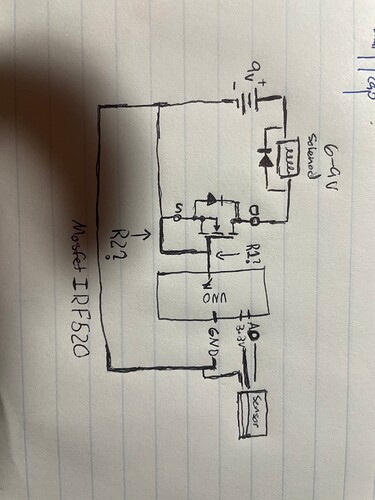 9V
+
-
6-9V
Solenoid
S
D
R1?
R2?
Mosfet IRF520
UNO
A0
3.3V
GND
Sensor